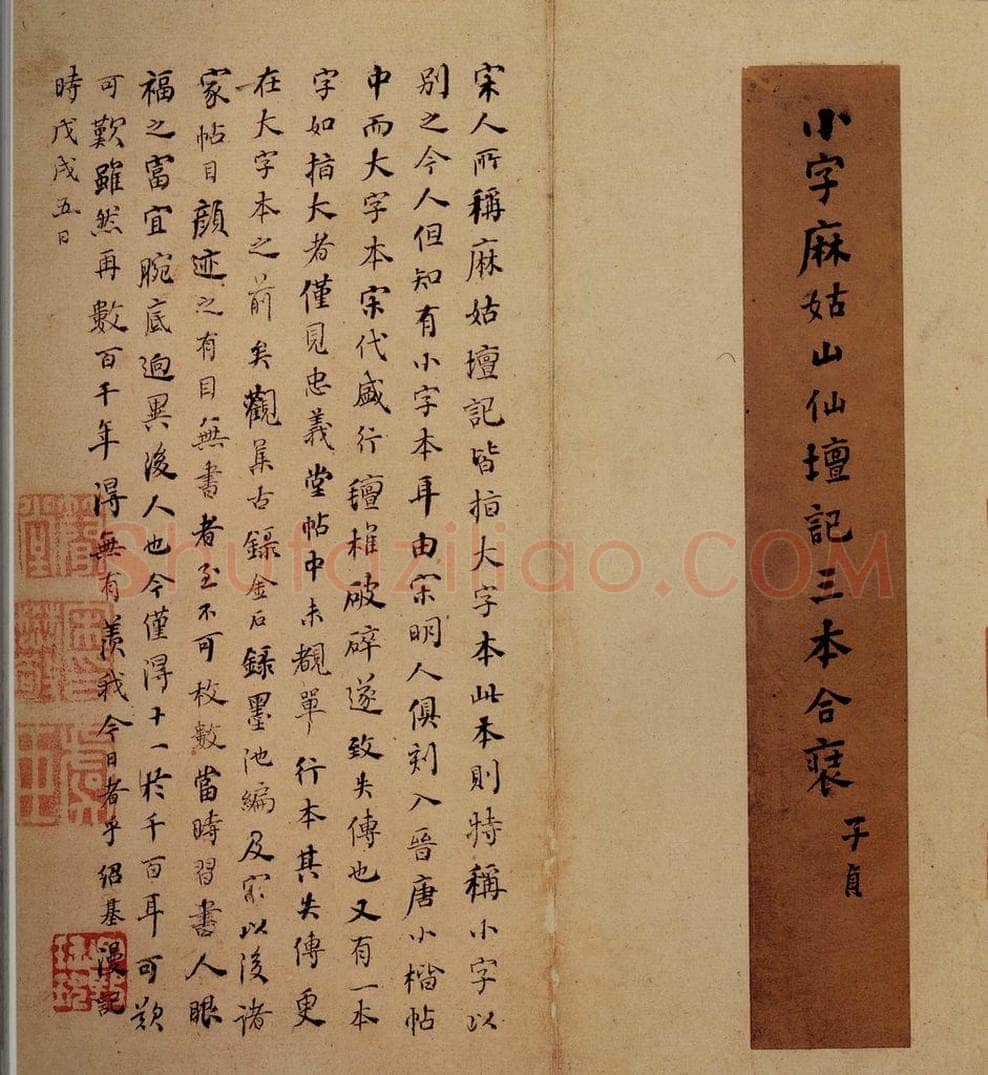 小字麻姑山仙壇記三本合裝
子貞
宋人所稱麻姑壇記皆指大字本此本則特稱小字以
別之今人但知有小字本耳由宋明人俱刻入晉唐小楷帖
中而大字本宋代盛行氊椎破碎遂致失傳也又有一本
字如指大者僅見忠義堂帖中未覩單行本其失傳更
在大字本之前矣觀集古錄金石錄墨池編及宋以後諸
家帖目顔迹之有目無書者至不可枚數當時習書人眼
福之富宜腕底迥異後人也今僅得十一於千百耳可歎
可歎雖然再數百千年得無有羨我今日者乎紹基漫記
時戊戌五日
Shufaziliao.COM